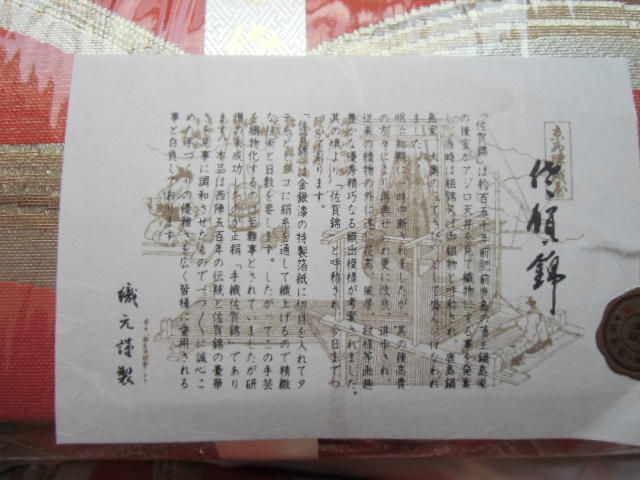 佐賀錦
「佐賀錦」は約百五十年前肥前鹿島の藩主鍋島家
の後室がアジロ天井を見て織物にする事を発案
し、当時は組錦又は
と呼称され、鹿島鍋
島家
大奥の
われ
ました。
明治初期に一時中断されましたが、其の後高貴
の方々により再興せられ更に改良、進歩され、
従来の織物の外に
花鳥、風景、紋様等画趣
豊かな優秀精巧なる織出模様が考案されました。
其の頃より「佐賀錦」と呼称され、今日までつ
づいております。
「佐賀錦」は金銀漆の特製箔紙に切目を入れてタ
テ糸とし、ヨコに絹糸を通して織上げるので精緻
な技術と日数を要します。したがってこの手芸
を織物化することは至難事とされていましたが研
鑽の末成功したのが正絹「手織佐賀錦」であり
ます。本品は西陣五百年の伝統と佐賀錦の豪華
さを見事に調和させたもので一つ一つに誠心こ
めた手づくりの優雅さを広く皆様に愛用される
事と自負しております。
織元謹製